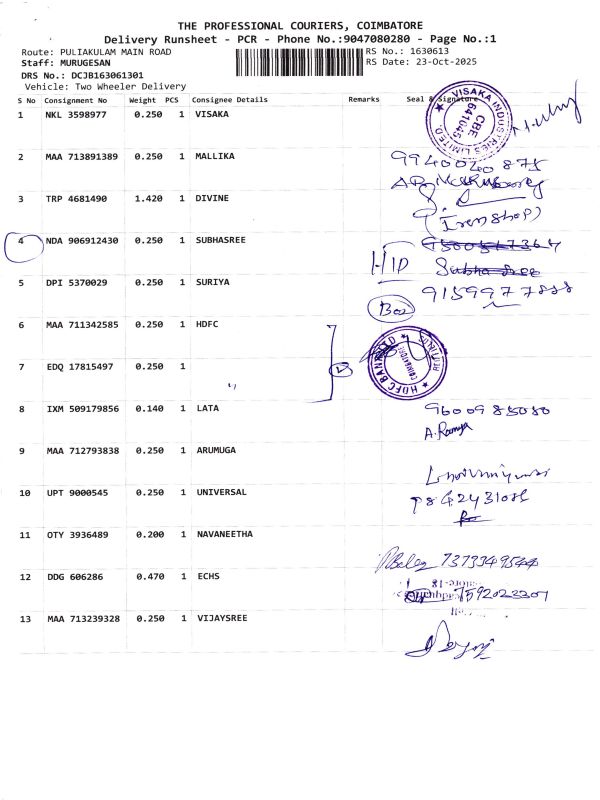 THE PROFESSIONAL COURIERS, COIMBATORE
Delivery Runsheet - PCR - Phone No.:9047080280 - Page No.:1
Route: PULIAKULAM MAIN ROAD
RS No.: 1630613
Staff: MURUGESAN
RS Date: 23-Oct-2025
DRS No.: DCJB163061301
Vehicle: Two Wheeler Delivery
S No Consignment No Weight PCS Consignee Details Remarks Seal & Signature
1 NKL 3598977 0.250 1 VISAKA
VISAKA INDUSTRIES LIMITED
CBE
641045
2 MAA 713891389 0.250 1 MALLIKA
9940020875
3 TRP 4681490 1.420 1 DIVINE
(Iron Shop)
4 NDA 906912430 0.250 1 SUBHASREE
H/D
Subha sree
5 DPI 5370029 0.250 1 SURIYA
9159977888
Box
6 MAA 711342585 0.250 1 HDFC
HDFC BANK
COIMBATORE
7 EDQ 17815497 0.250 1 "
8 IXM 509179856 0.140 1 LATA
9600985080
A. Ramya
9 MAA 712793838 0.250 1 ARUMUGA
10 UPT 9000545 0.250 1 UNIVERSAL
11 OTY 3936489 0.200 1 NAVANEETHA
7373349544
12 DDG 606286 0.470 1 ECHS
7592022207
13 MAA 713239328 0.250 1 VIJAYSREE